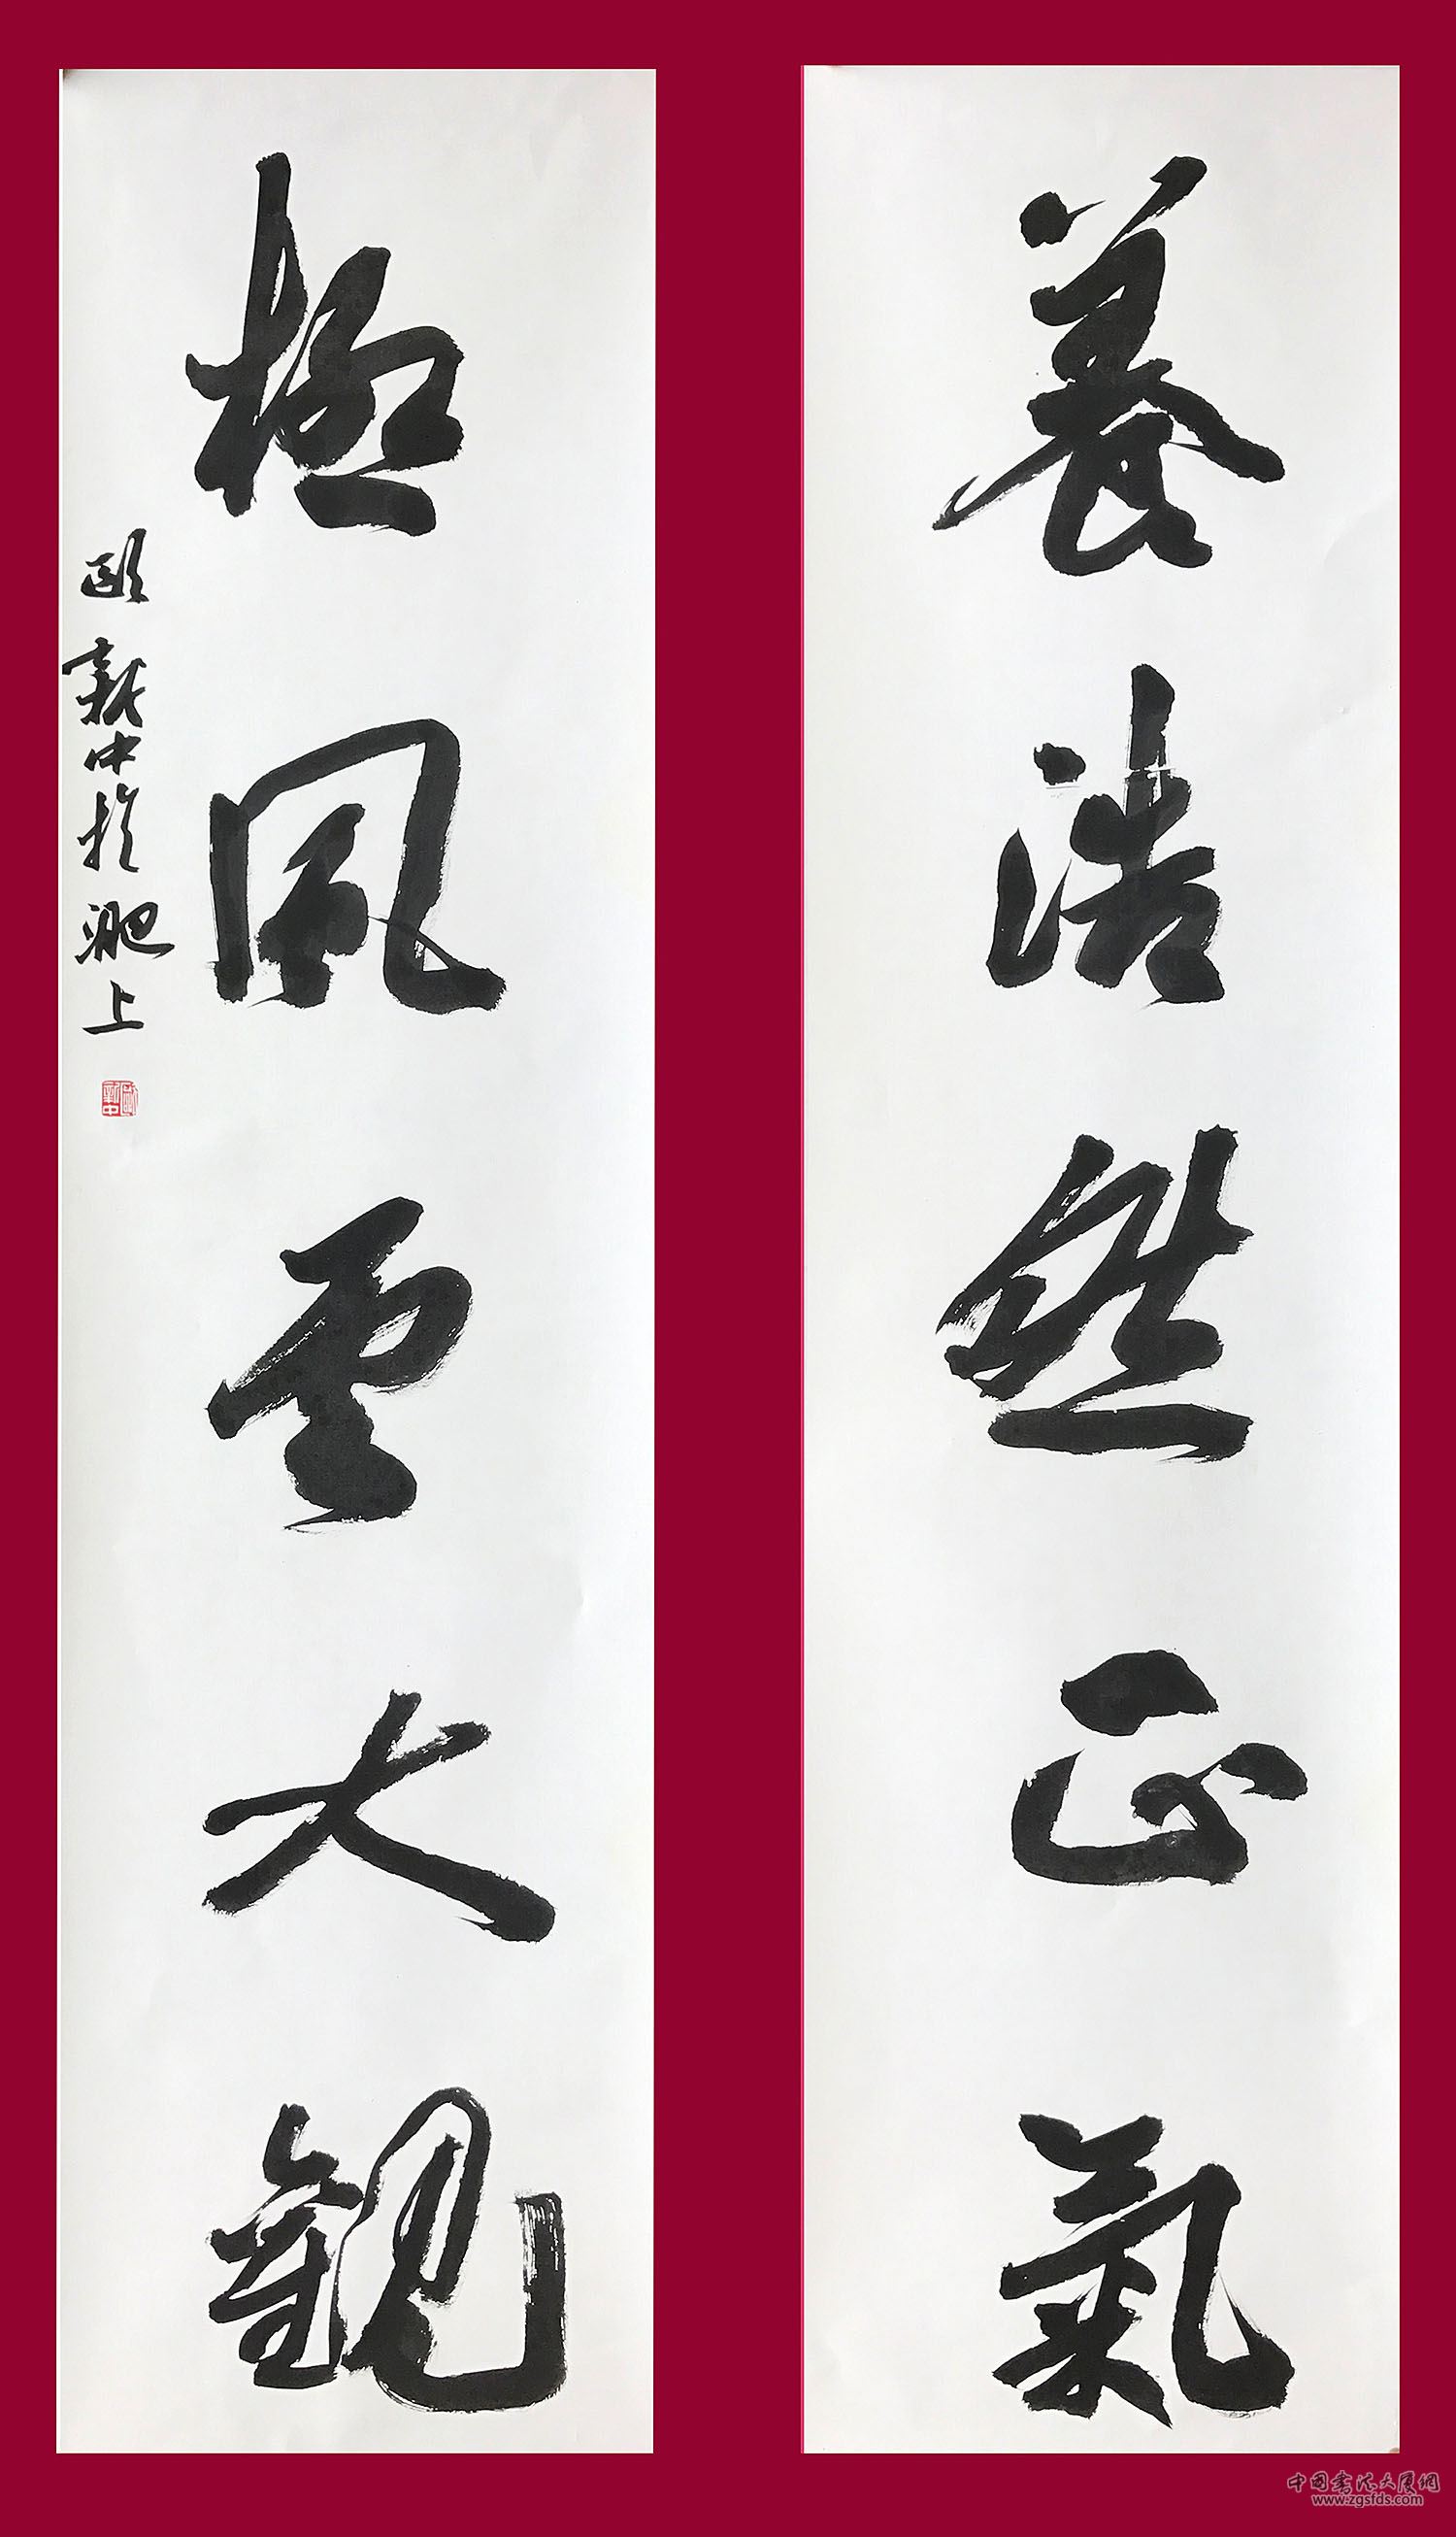 養浩然正氣
極風雲大觀
歐新中於淝上
歐新中
中国书法大厦网
www.zgsfds.com